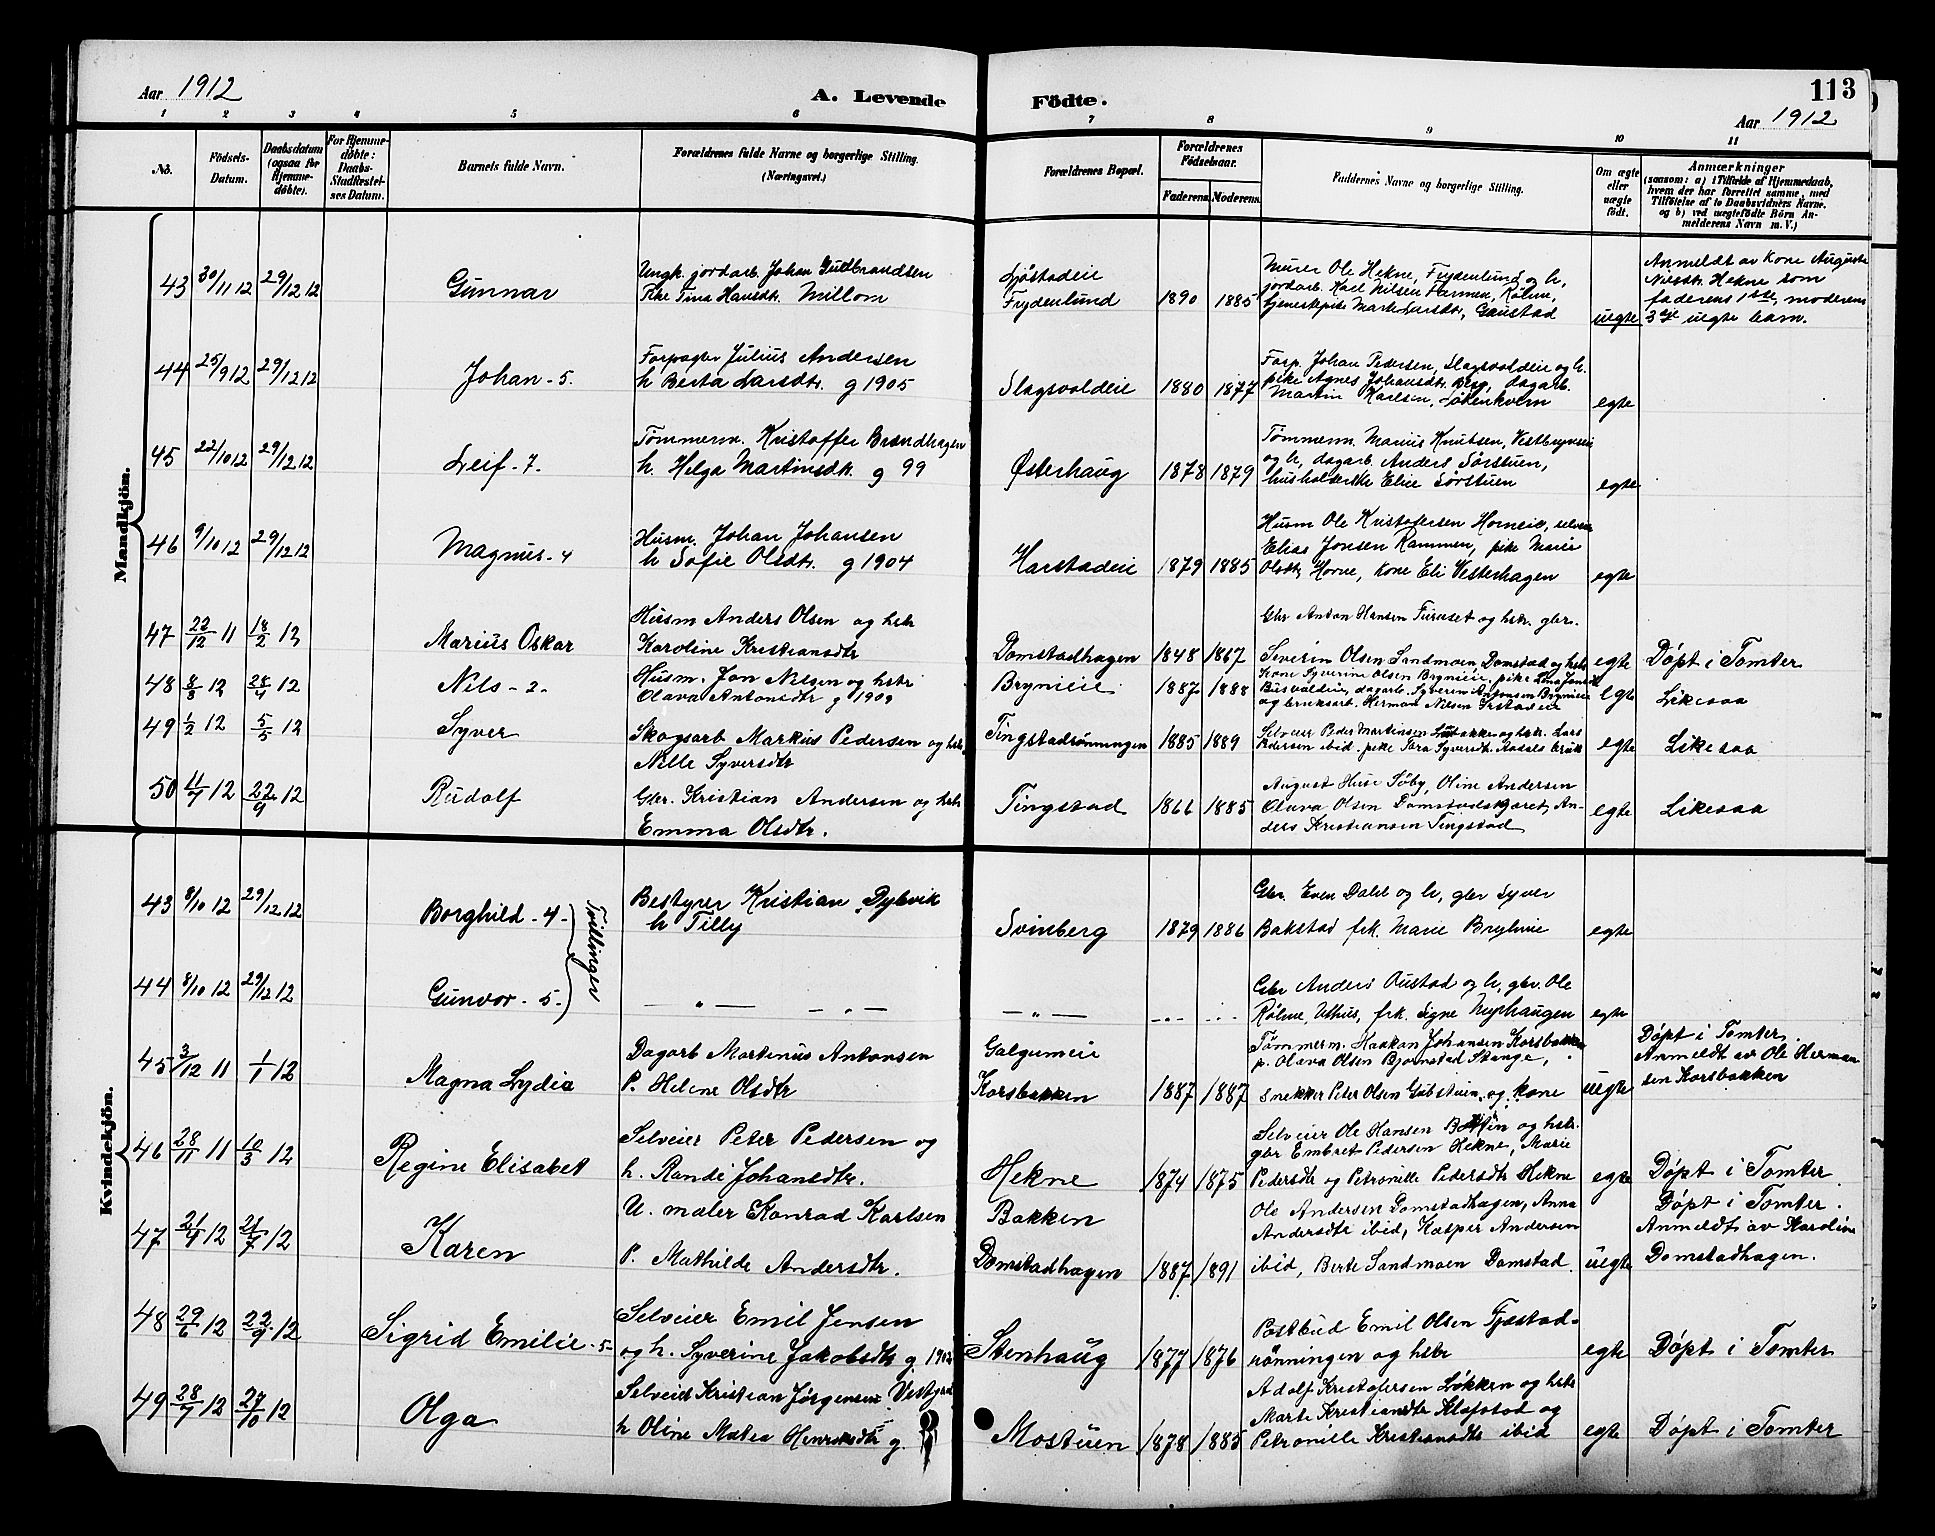 Aar 1912
A. Levende
Födte.
113
Aar 1912
1 2 3 4 5 6 7 8 9 10 11
No.
Födsels-
Datum.
Daabsdatum
(ogsaa for
Hjemme-
döbte).
For Hjemme-
döbte:
Daabs-
Stadfæstel-
ses Datum.
Barnets fulde Navn.
Forældrenes fulde Navne og borgerlige Stilling.
(Næringsvei.)
Forældrenes Bopæl.
Forældrenes
Födselsaar.
Faderens. Moderens.
Faddernes Navne og borgerlige Stilling.
Om ægte
eller
uægte
födt.
Anmærkninger
(saasom: a) i Tilfælde af Hjemmedaab,
hvem der har forrettet samme, med
Tilföielse af to Daabsvidners Navne.
og b) ved uægtefödte Börn An-
melderens Navn m. V.)
Mandkjön.
43 30/11 12 29/12 12
Gunnar
Ungk. jordarb. Johan Gudbrandsen
Pike Tina Hansdtr. Millom
Sjøstadeie
Frydenlund 1890 1885
Murer Ole Hekne, Frydenlund og h,
jordarb. Karl Nilsen Farmen, Rølne,
tjenestepike Marte Larsdtr, Gaustad
uegte
Anmeldt av kone Auguste
Nilsdtr. Hekne som
faderens 1ste, moderens
3dje uegte barn.
44 25/9 12 29/12 12
Johan - 5.
Forpagter Julius Andersen
h Berta Larsdtr. g 1905
Slagsvoldeie 1880 1877
Forp. Johan Pedersen, Slagsvoldeie og h.
pike Agnes Johansdtr. Berg, dagarb.
Martin Karlsen, Løkenkvern
egte
45 22/10 12 29/12 12
Leif - 7.
Tømmerm. Kristoffer Brændhagen
h. Helga Martinsdtr. g 99
Østerhaug 1878 1879
Tømmerm. Marius Knutsen, Vestbrynseie
og h, dagarb. Anders Sørstuen,
husholderske Elise Sørstuen
egte
46 9/10 12 29/12 12
Magnus - 4
Husm. Johan Johansen
h Sofie Olsdtr. g 1904
Harstadeie 1879 1885
Husm Ole Kristofersen Horneie, selvei
Elias Jonsen Rammen, pike Marie
Olsdtr Horne, kone Eli Vesterhagen
egte
47 22/12 11 18/2 12
Marius Oskar
Husm Anders Olsen og hstr
Karoline Kristiansdtr
Domstadhagen 1848 1867
Gbr Anton Hansen Furuset og hstr. gbr.
Severin Olsen Sandmoen, Domstad og hstr
egte
Døpt i Tomter
48 8/3 12 28/4 12
Nils - 2.
Husm. Jon Nilsen og hstr
Olava Antonsdtr g 1909
Brynieie 1887 1888
Kone Syverine Olsen Brynieie, pike Lina Jansdtr
Busvaldeie, dagarb. Syverin Antonsen Brynieie
og bruksarb. Herman Nilsen Irstadeie
egte
Likesaa
49 1/2 12 5/5 12
Syver
Skogsarb Markus Pedersen og hstr.
Nille Syversdtr
Tingstadrønningen 1885 1889
Selveier Peder Martinsen og hstr. Lars
Pedersen ibid. pike Tora Syversdtr. Aadals bruk
egte
Likesaa
50 11/7 12 22/9 12
Rudolf
Gbr. Kristian Andersen og hstr
Emma Olsdtr.
Tingstad 1866 1885
August Huse Søby, Oline Andersen
Olava Olsen Domstadskjæret, An-
ders Kristiansen Tingstad
egte
Likesaa
Kvindekjön.
43 8/10 12 29/12 12
Borghild - 4 -
Tvillinger
Bestyrer Kristian Dybvik
h Tilly
Svinberg 1879 1886
Gbr. Even Dahl og h, gbr Syver
Bakstad frk. Marie Bryhnie
egte
44 8/10 12 29/12 12
Gunvor - 5 -
— „ — - „ -
— „ — -„- -„-
Gbr Anders Oustad og h, gbr. Ole
Rølne, Uthus, frk. Signe Nyphaugen
egte
45 3/12 11 1/1 12
Magna Lydia
Dagarb Martinus Antonsen
P. Helene Olsdtr
Galgumeie
Korsbakken 1887 1887
Tømmerm. Haakon Johansen Korsbakken
p. Olava Olsen Bjørnstad Stange,
snekker Peter Olsen Gubstuen og kone
uegte
Døpt i Tomter.
Anmeldt av Ole Herman
sen Korsbakken
46 28/11 11 10/3 12
Regine Elisabet
Selveier Peter Pedersen og
h. Randi Johansdtr.
Hekne 1874 1875
Selveier Ole Hansen og hstr.
gbr Embret Pedersen Hekne, Marie
Pedersdtr og Petronille Pedersdtr Hekne
egte
Døpt i Tomter
47 21/4 12 21/7 12
Karen
U. maler Konrad Karlsen
P. Mathilde Andersdtr.
Bakken
Domstadhagen 1887 1891
Ole Andersen Domstadhagen, Anna
Andersdtr ibid, Kasper Andersen
ibid, Berte Sandmoen Domstad.
uegte
Døpt i Tomter.
Anmeldt av Karoline
Domstadhagen.
48 29/6 12 22/9 12
Sigrid Emilie - 5-
Selveier Emil Jensen
og h. Syverine Jakobsdtr g. 1902
Stenhaug 1877 1876
Postbud Emil Olsen Fjæstad-
rønningen og hstr
egte
Døpt i Tomter
49 28/7 12 27/10 12
Olga
Selveier Kristian Jørgensen Vestgard
h Oline Matea Henriksdtr g.
Mostuen 1878 1885
Adolf Kristofersen Løkken og hstr
Marte Kristiansdtr Klafstad og
Petronille Kristiansdtr ibid
egte
Døpt i Tomter